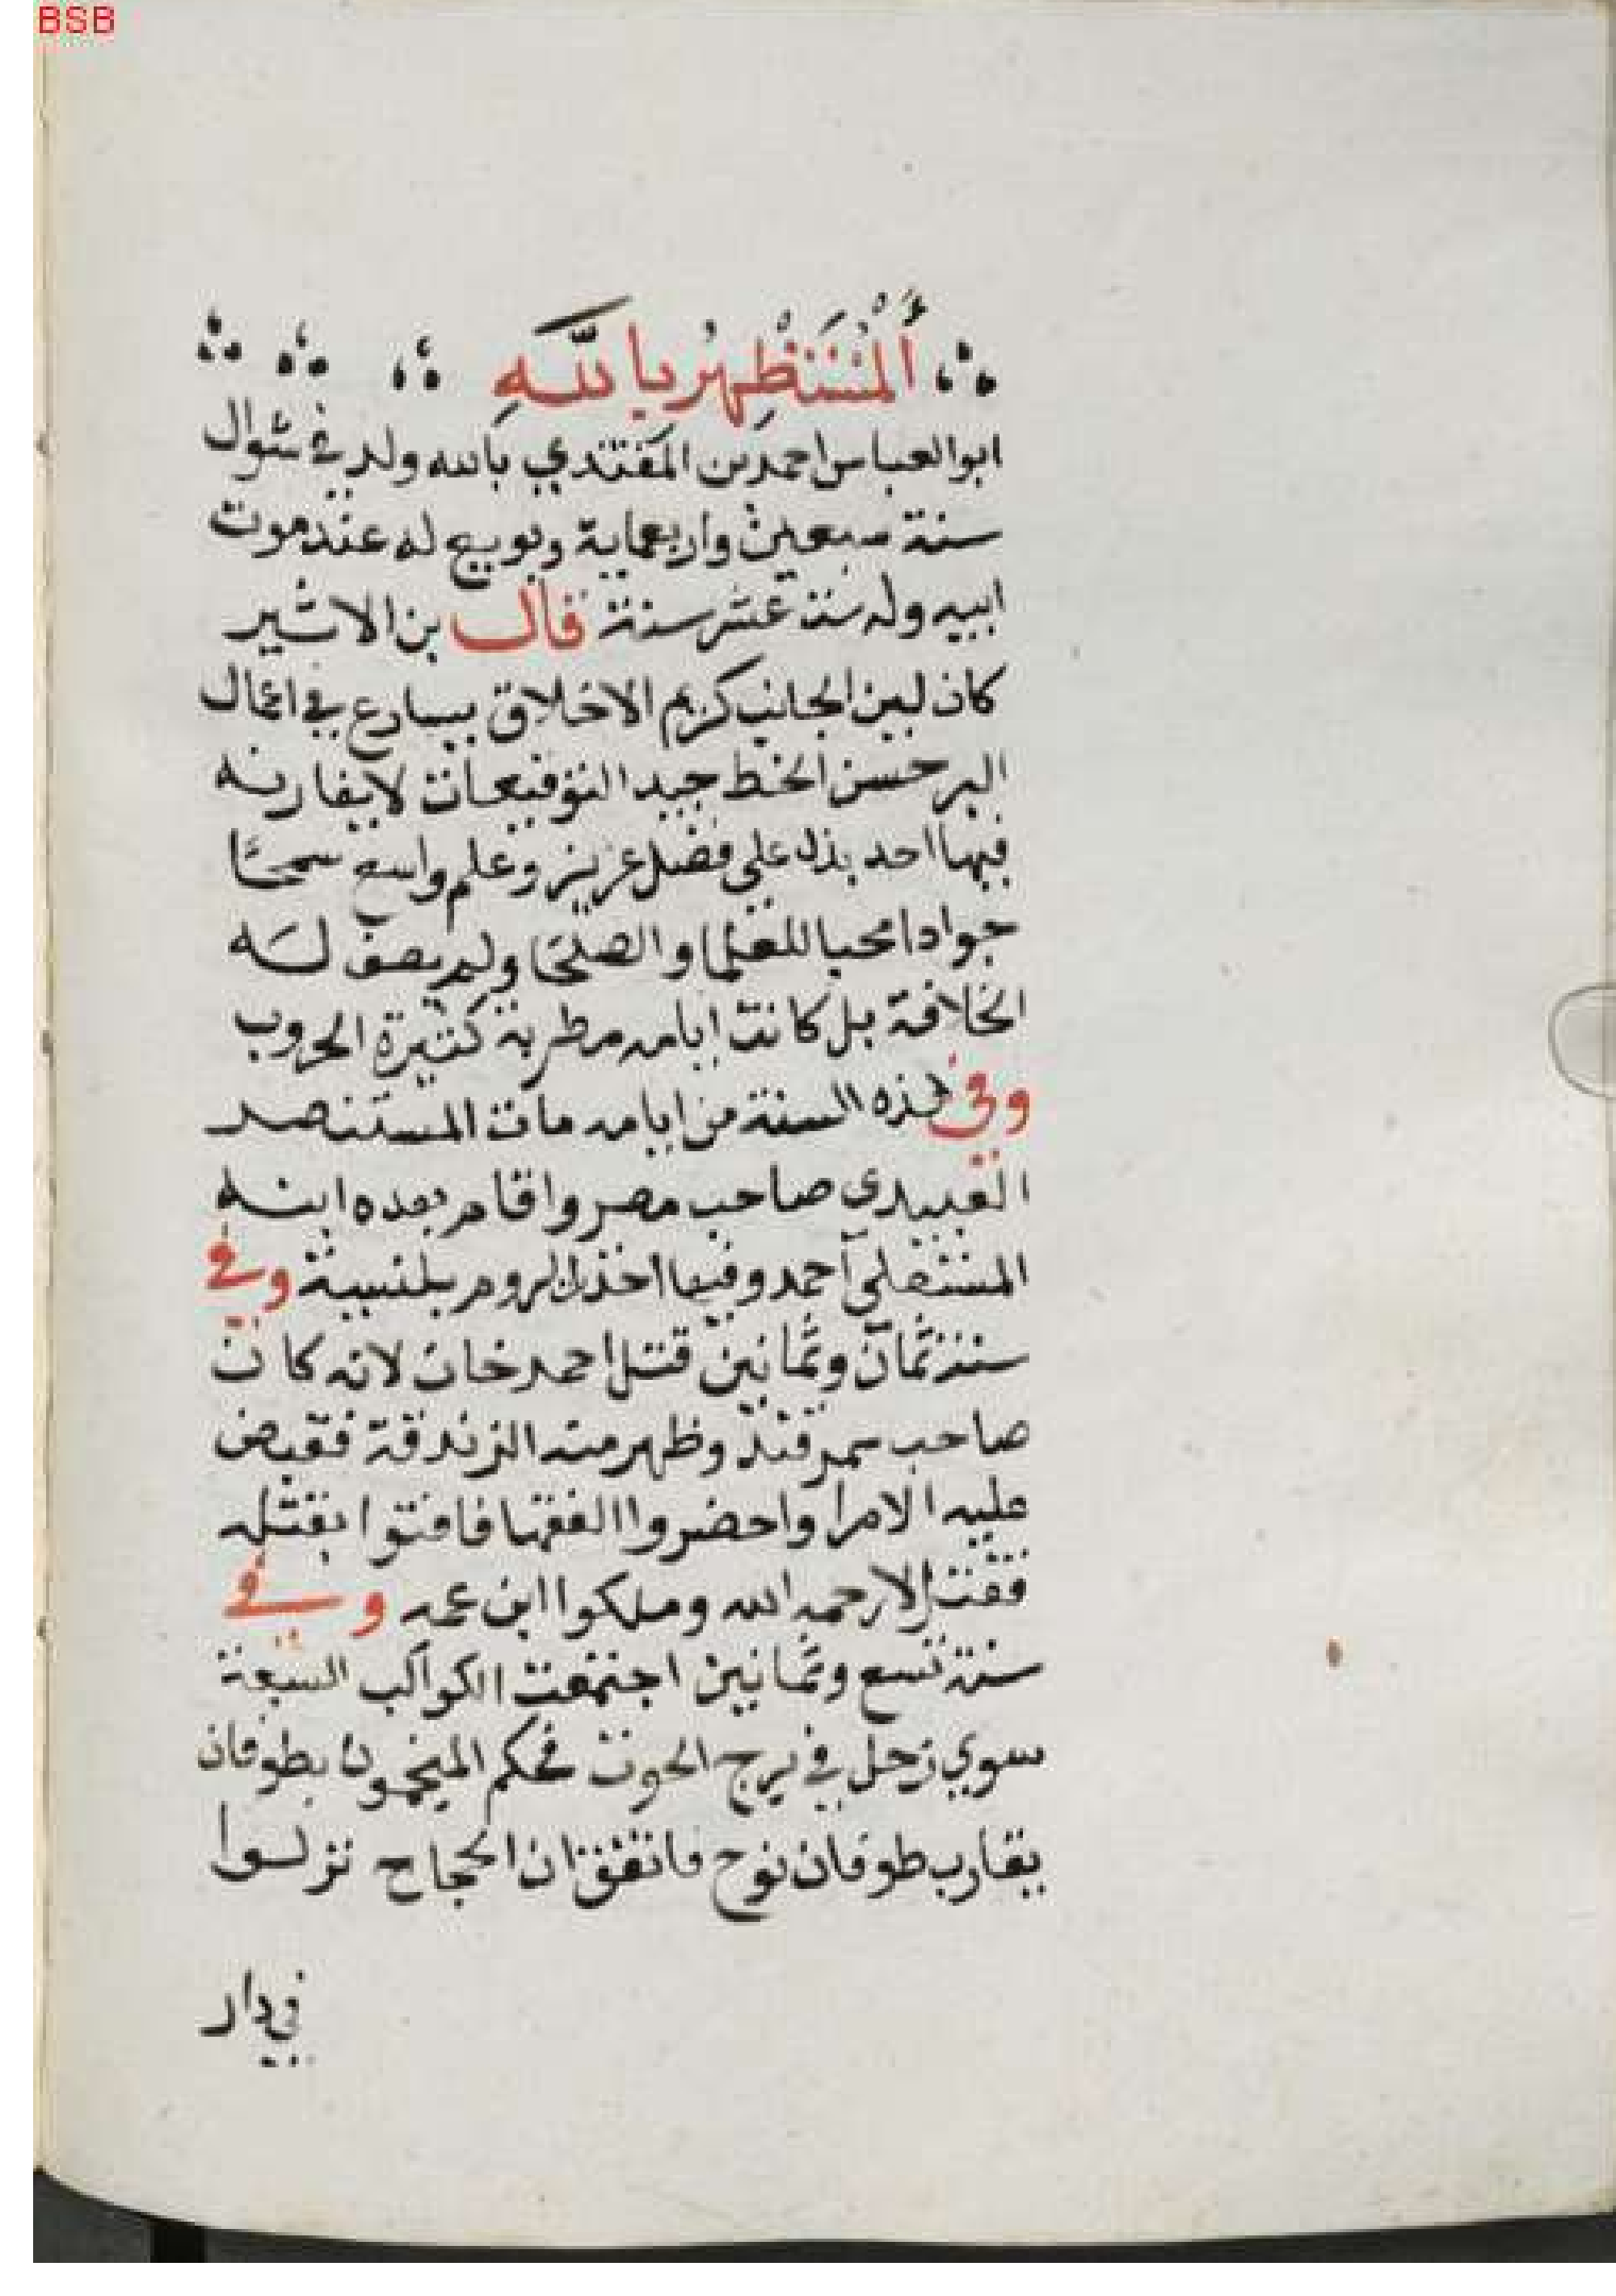 BSB
اَلْمُسْتَظْهِرُ بِاللَّهِ
ابو العباس احمد بن المقتدي بالله ولد في شوال
سنة سبعين واربعماية وبويع له عند موت
ابيه وله ست عشر سنة قال بن الاثير
كان لين الجانب كريم الاخلاق يسارع في اعمال
البر حسن الخط جيد التوقيعات لا يقاربه
فيها احد يدل علي فضل عزيز وعلم واسع سمحًا
جوادا محبا للعلما والصلحا ولم يصف له
الخلافة بل كانت ايامه مطربة كثيرة الحروب
وفي هذه السنة من ايامه مات المستنصر
العبيدي صاحب مصر واقام بعده ابنه
المستعلي احمد وفيها اخذت الروم بلنسية وفي
سنة ثمان وثمانين قتل احمد خان لانه كان
صاحب سمرقند وظهر منه الزندقة فقبض
عليه الامرا واحضروا الفقها فافتوا بقتله
فقتل لا رحمه الله وملكوا ابن عمه وفي
سنة تسع وثمانين اجتمعت الكواكب السبعة
سوي زحل في برج الحوت فحكم المنجمون بطوفان
يقارب طوفان نوح فاتفق ان الحجاج نزلوا
في دار